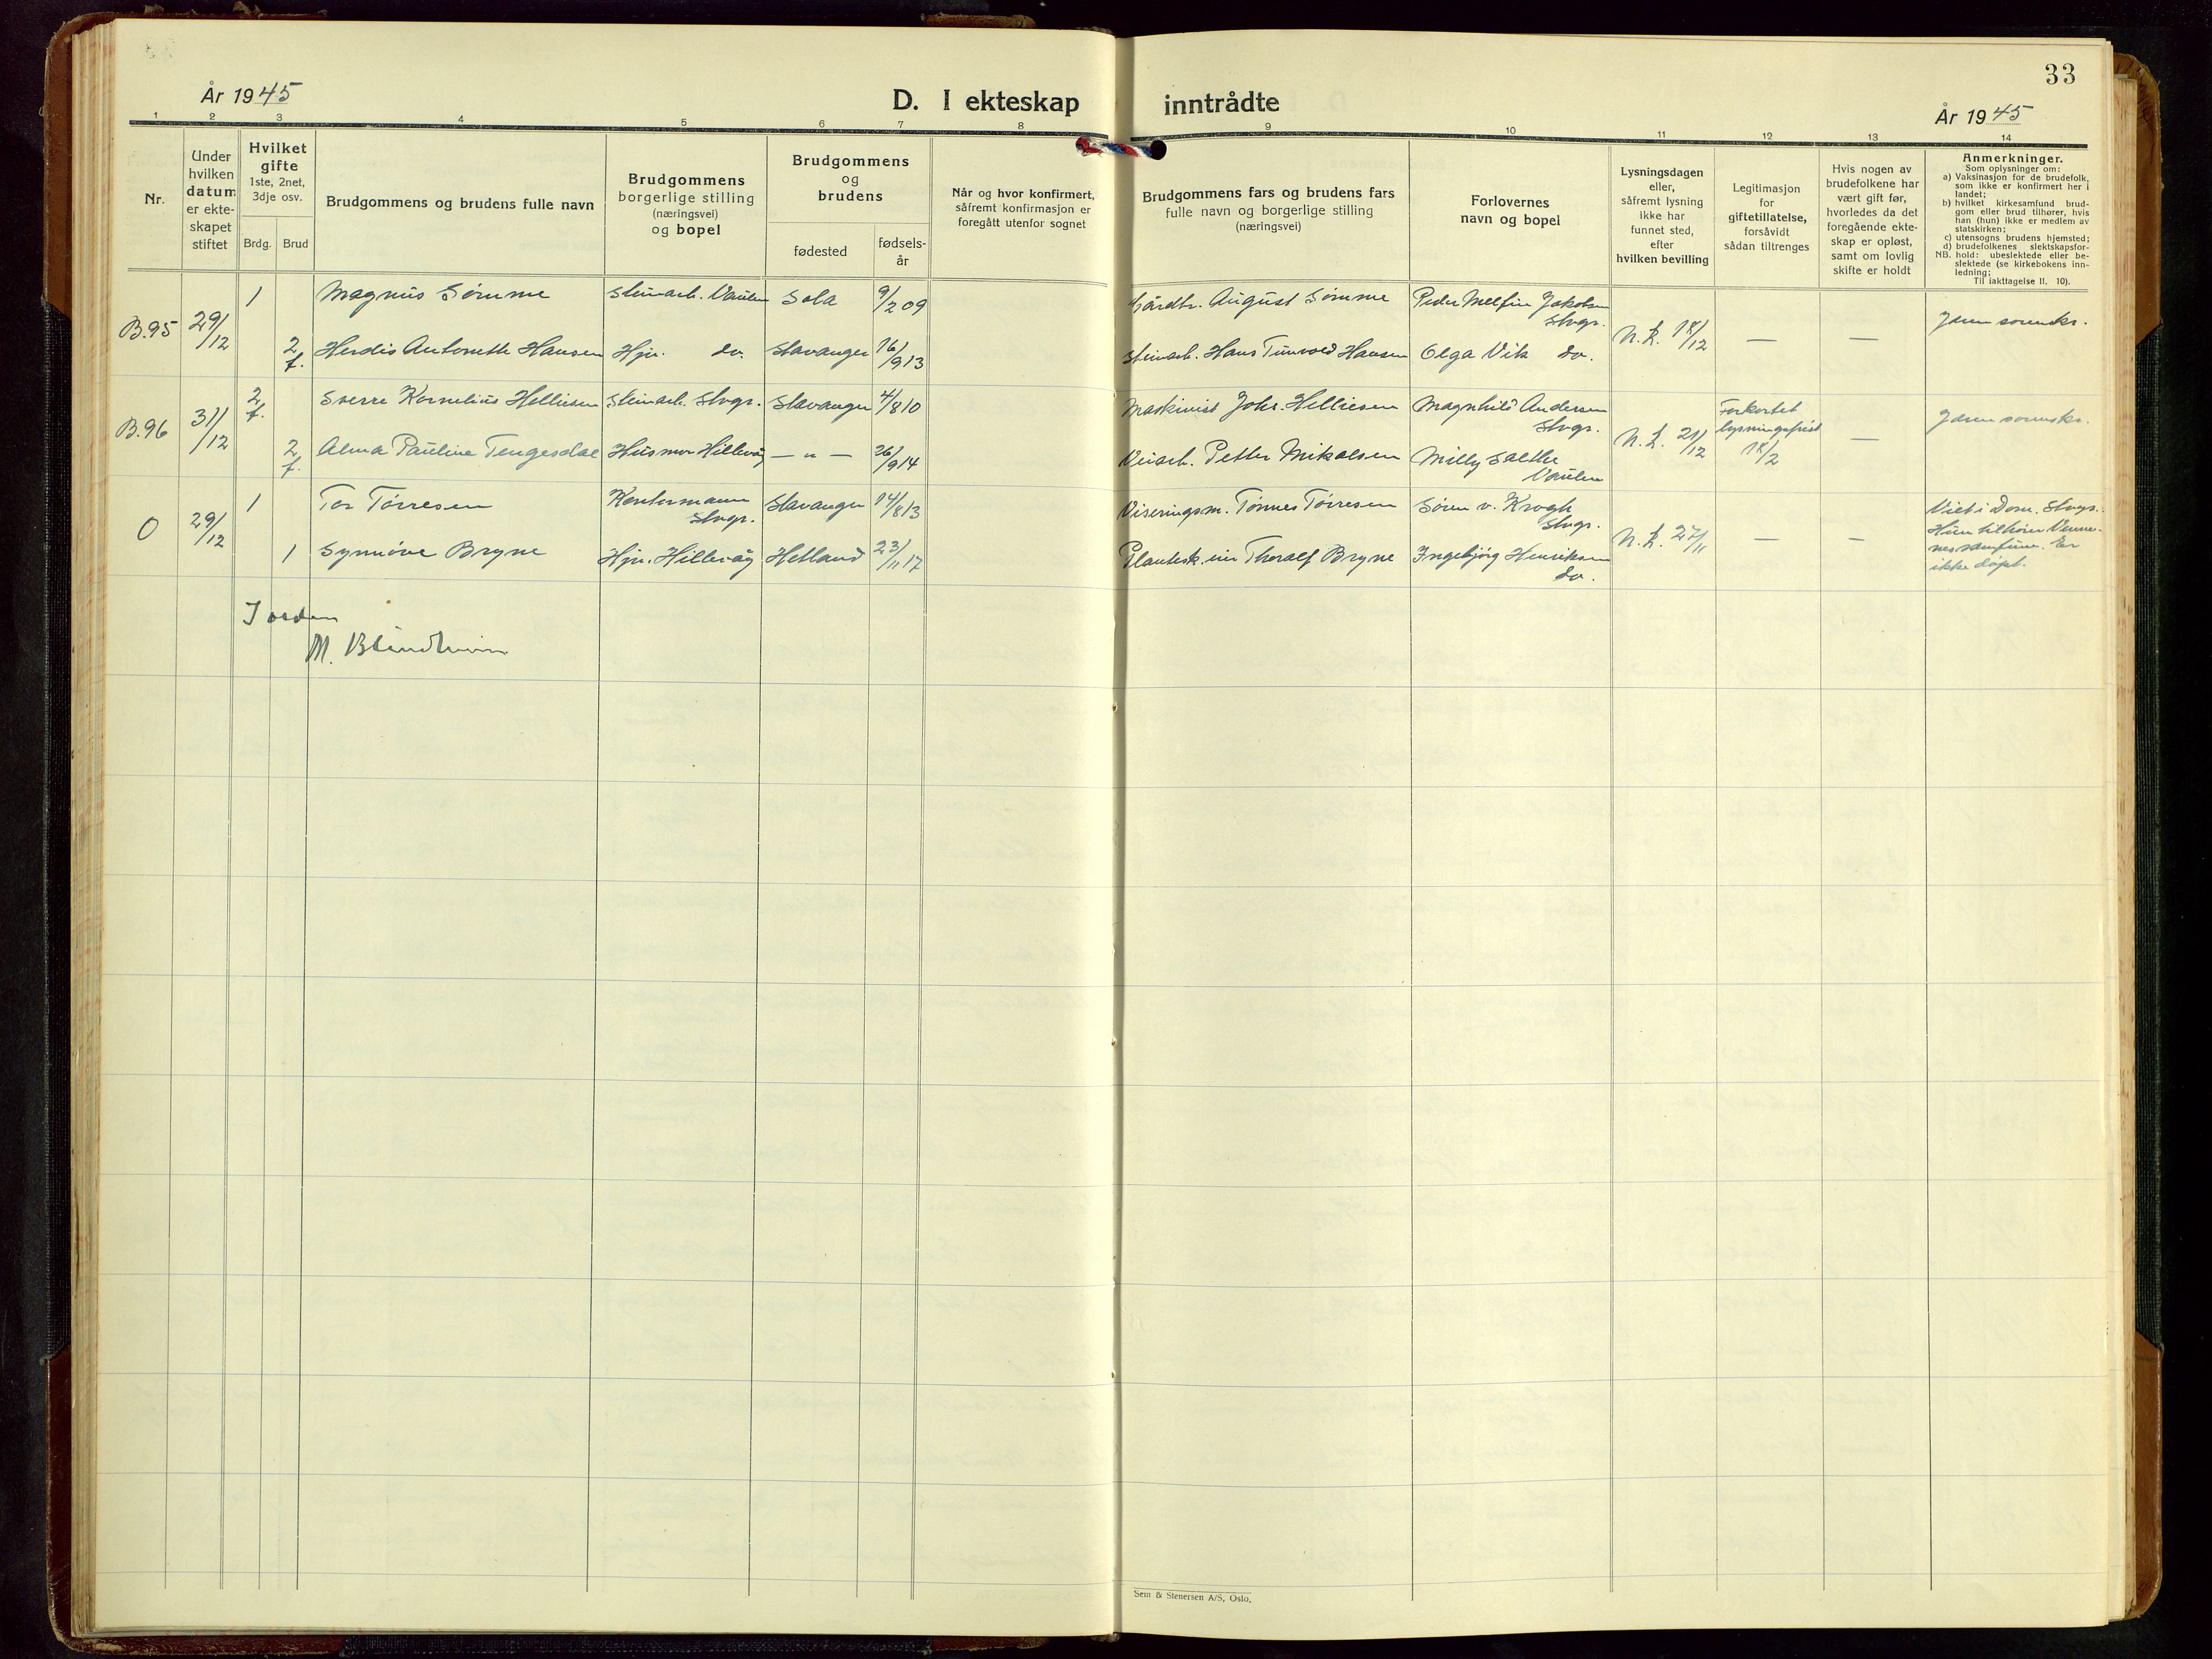 33
År 1945
D. I ekteskap inntrådte
År 1945
1 2 3 4 5 6 7 8 9 10 11 12 13 14
Nr.
Under
hvilken
datum
er ekte-
skapet
stiftet
Hvilket
gifte
1ste, 2net,
3dje osv.
Brdg. Brud
Brudgommens og brudens fulle navn
Brudgommens
borgerlige stilling
(næringsvei)
og bopel
Brudgommens
og
brudens
fødested
fødsels-
år
Når og hvor konfirmert,
såfremt konfirmasjon er
foregått utenfor sognet
Brudgommens fars og brudens fars
fulle navn og borgerlige stilling
(næringsvei)
Forlovernes
navn og bopel
Lysningsdagen
eller,
såfremt lysning
ikke har
funnet sted,
efter
hvilken bevilling
Legitimasjon
for
giftetillatelse,
forsåvidt
sådan tiltrenges
Hvis nogen av
brudefolkene har
vært gift før,
hvorledes da det
foregående ekte-
skap er opløst,
samt om lovlig
skifte er holdt
Anmerkninger.
Som oplysninger om:
a) Vaksinasjon for de brudefolk,
som ikke er konfirmert her i
landet;
b) hvilket kirkesamfund brud-
gom eller brud tilhører, hvis
han (hun) ikke er medlem av
statskirken;
c) utensogns brudens hjemsted;
d) brudefolkenes slektskapsfor-
hold: ubeslektede eller be-
NB. slektede (se kirkebokens inn-
ledning;
Til iakttagelse II. 10).
B.95 29/12
1 Magnus Sømme Steinarb. Vaulen Sola 9/2 09 Gårdbr. August Sømme Peder Jakobsen
Stvgr.
2 f. Herdis Antonette Hansen Hjv. do. Stavanger 16/9 13 Steinarb. Hans Hansen Olga Vik do.
N.L. 18/12 — — Jæren sorenskr.
B.96 31/12
2 f. Sverre Kornelius Helliesen Steinarb. Stvgr. Stavanger 4/8 10 Maskinist Johs. Helliesen Magnhild Andersen
Stvgr.
2 f. Alma Pauline Tengesdal Husmor Hillevåg — " — 26/9 14 Veiarb. Petter Mikalsen Milly Salthe
Vaulen
N.L. 21/12 Forkortet
lysningsfrist
18/2 — Jæren sorenskr.
0 29/12
1 Tor Tørresen Kontormann
Stvgr. Stavanger 14/8 13 Viseringsm. Tønnes Tørresen Søren v. Krogh
Stvgr.
1 Synnøve Bryne Hjv. Hillevåg Hetland 23/11 17 Plantesk. eier Thoralf Bryne Ingebjørg Henriksen
do.
N.L. 27/11 — — Viet i Dom. Stvgr.
Hun tilhører Venne-
nes samfunn. Er
ikke døpt.
I orden
M. Blindheim
Sem & Stenersen A/S, Oslo.